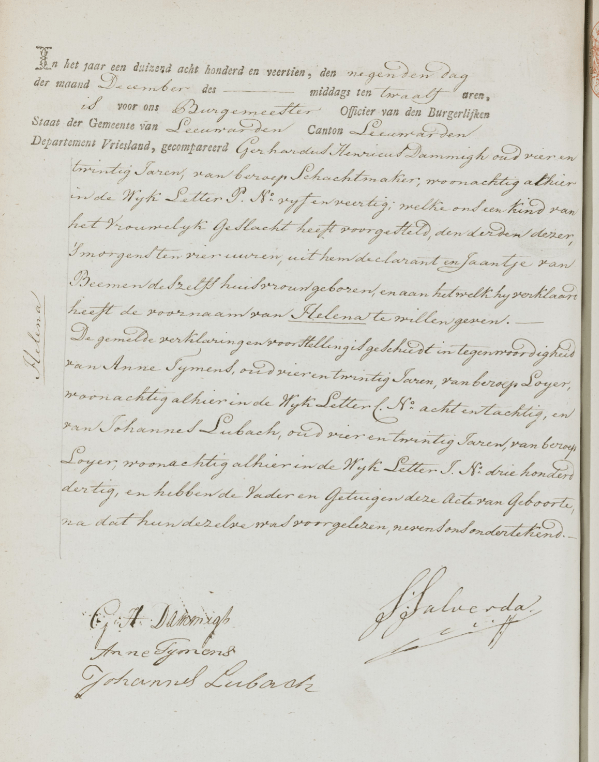 In het jaar een duizend acht honderd en veertien, den negenden dag
der maand December des ——— middags ten twaalf uren,
is voor ons Burgemeester Officier van den Burgerlijken
Staat der Gemeente van Leeuwarden Canton Leeuwarden
Departement Vriesland, gecompareerd Gerhardus Henricus Dammigh oud vier en
twintig Jaren, van beroep Schachtmaker, woonachtig alhier
in de Wyk Letter P. No. vyf en veertig; welke ons een kind van
het Vrouwelyk Geslacht heeft voorgesteld, den derden dezer,
's morgens ten vier uuren, uit hem declarant en Jaantje van
Beemen deszelfs huisvrouw geboren, en aan hetwelk hy verklaart
heeft de voornaam van Helena te willen geven. —
Helena
De gemelde verklaring en voorstelling is geschiedt in tegenwoordigheid
van Anne Tymens, oud vier en twintig Jaren, van beroep Loyer,
woonachtig alhier in de Wyk Letter C. No. acht en tachtig, en
van Johannes Lubach, oud vier en twintig Jaren, van beroep
Loyer, woonachtig alhier in de Wyk Letter I. No. drie honderd
dertig, en hebben de Vader en Getuigen deze Acte van Geboorte,
na dat hun dezelve was voorgelezen, nevens ons ondertekend. —
G. H. Dammigh
S: Salverda.
Anne Tymens
Johannes Lubach